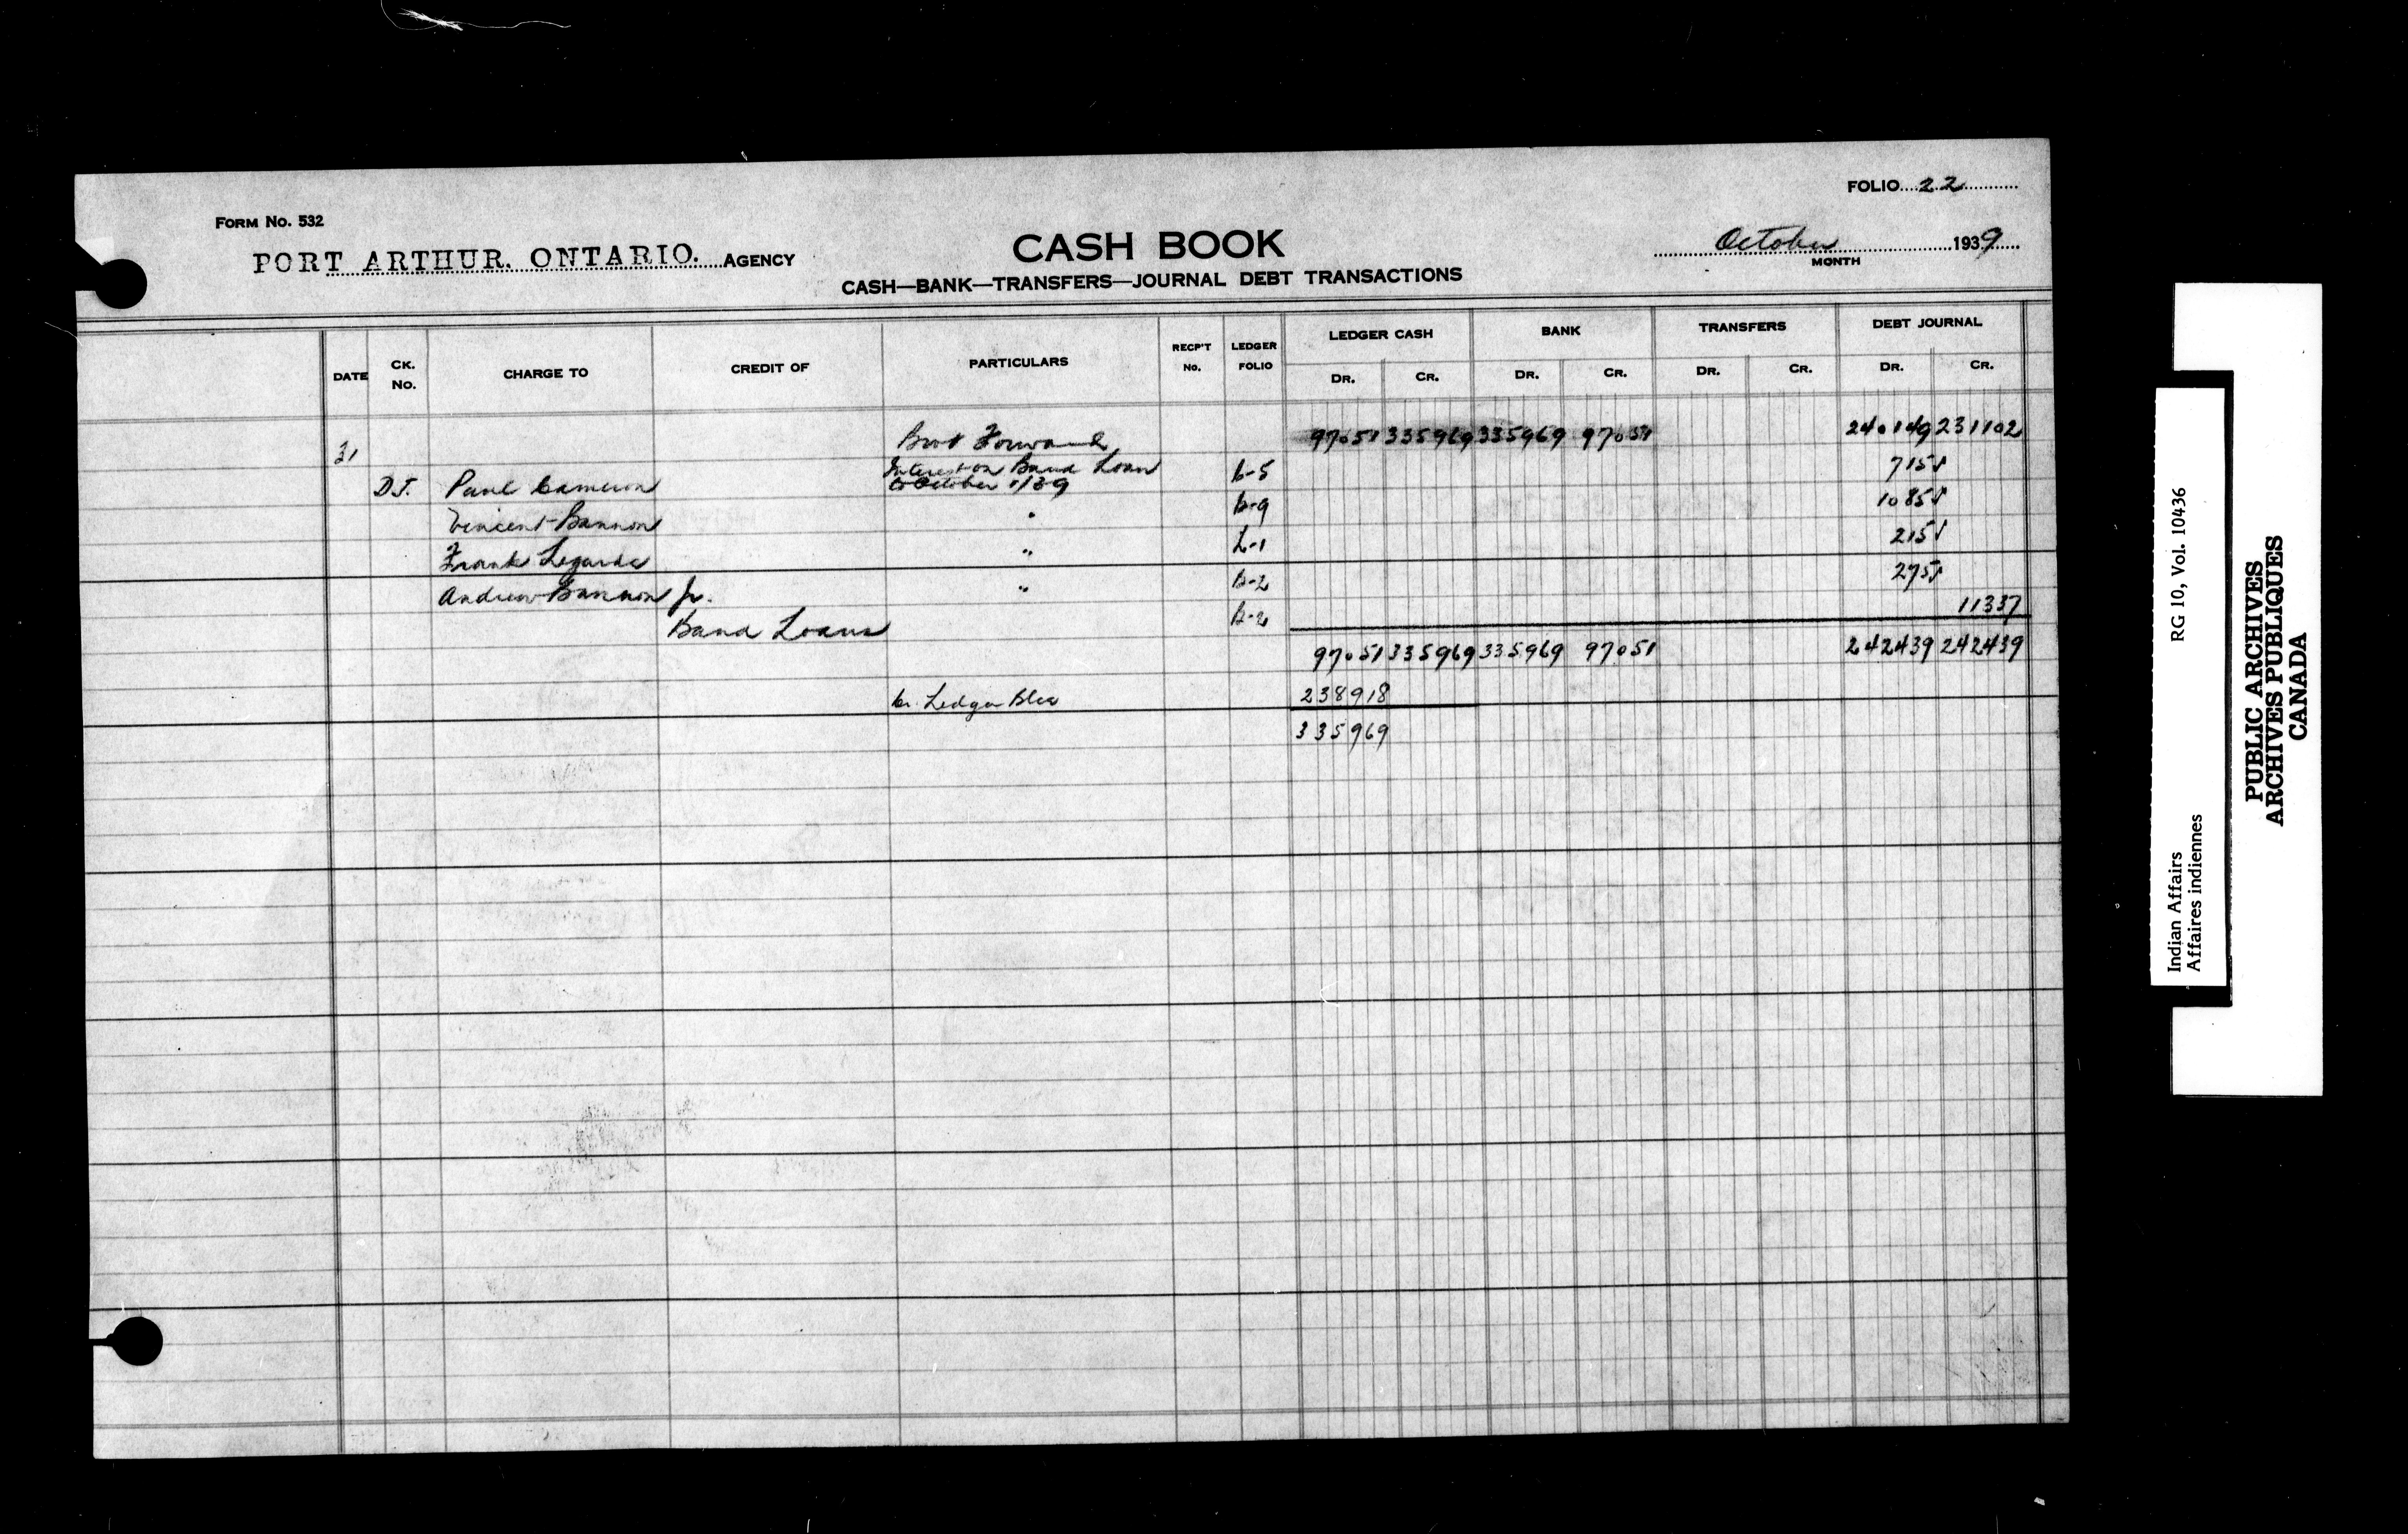 FOLIO 22
FORM No. 532
PORT ARTHUR. ONTARIO. AGENCY
CASH BOOK
October 1939
MONTH
CASH—BANK—TRANSFERS—JOURNAL DEBT TRANSACTIONS
DATE CK. No. CHARGE TO CREDIT OF PARTICULARS RECP'T No. LEDGER FOLIO LEDGER CASH BANK TRANSFERS DEBT JOURNAL
DR. CR. DR. CR. DR. CR. DR. CR.
Brot Forward 97051 335969 335969 97051 240149 231102
31 Interest on Band Loan
D.J. Paul Cameron to October 1/39 C-5 715 √
Vincent Bannon " B-9 1085 √
Frank Legarde " L-1 215 √
Andrew Bannon Jr. " B-2 275 √
Band Loans B-2 11337
97051 335969 335969 97051 242439 242439
Cr. Ledger Blce 238918
335969
Indian Affairs RG 10, Vol. 10436
Affaires indiennes
PUBLIC ARCHIVES
ARCHIVES PUBLIQUES
CANADA